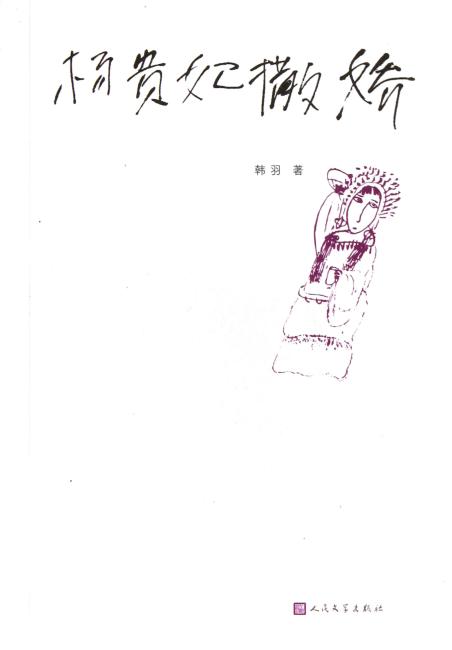 杨贵妃撒娇
韩羽 著
人民文学出版社